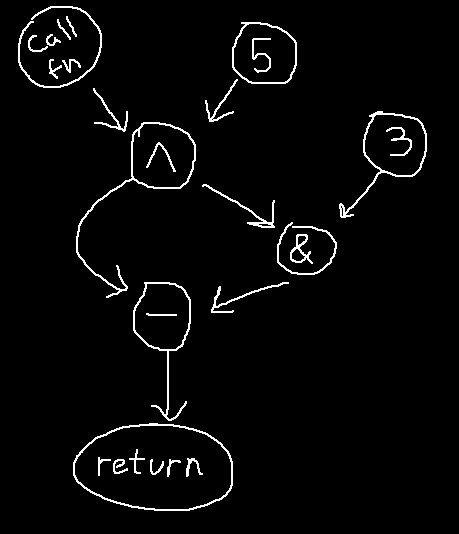 Call
fn
5
^
3
&
−
return